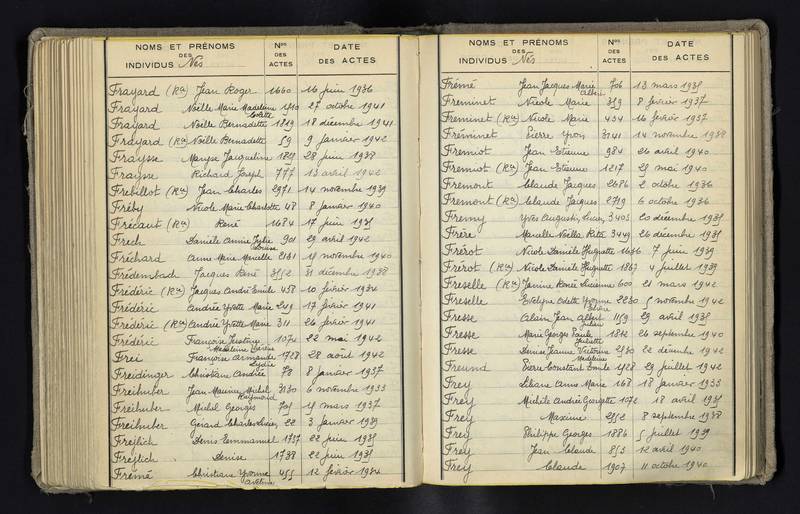 NOMS ET PRÉNOMS
DES
INDIVIDUS Nés
Nos
DES
ACTES
DATE
DES ACTES
Frayard (Rce) Jean Roger 1660 16 juin 1936
Frayard Noëlle Marie Madeleine Colette 27 octobre 1941
Frayard Noëlle Bernadette 1819 18 décembre 1941
Frayard (Rce) Noëlle Bernadette 59 9 janvier 1942
Fraysse Maryse Jacqueline 28 juin 1938
Fraysse Richard Joseph 777 13 avril 1942
Frebillot (Rce) Jean Charles 2971 14 novembre 1939
Fréby Nicole Marie Charlotte 48 8 janvier 1940
Frécaut (Rce) René 1684 17 juin
Frech Danièle Annie Lydie Louise 901 29 avril 1942
Fréchard Anne Marie Marcelle novembre 1940
Frédembach Jacques René 31 décembre 1938
Frédéric (Rce) Jacques André Emile 458 10 février
Frédéric Andrée Yvette Marie 249 17 février 1941
Frédéric (Rce) Andrée Yvette Marie 311 26 février 1941
Frédéric Françoise Justine Madeleine 1071 22 mai 1942
Frei Françoise Armande Lydie 1728 28 août 1942
Freidinger Christiane Andrée 78 8 janvier 1937
Freihuber Jean Maurice Michel Raymond 3030 6 novembre 1933
Freihuber Michel Georges mars 1937
Freihuber Gérard Charles 22 3 janvier 1939
Frejlich Denis Emmanuel 1737 22 juin
Frejlich Denise 1738 22 juin
Frémé Christiane Yvonne 455 12 février 1934
NOMS ET PRÉNOMS
DES
INDIVIDUS Nés
Nos
DES
ACTES
DATE
DES ACTES
Frémé Jean Jacques Marie Albert 706 13 mars
Freminet Nicole Marie 359 8 février 1937
Freminet (Rce) Nicole Marie 434 16 février 1937
Fréminet Pierre Yvon 3141 14 novembre 1938
Fremiot Jean Etienne 984 26 avril 1940
Fremiot (Rce) Jean Etienne 1217 28 mai 1940
Fremont Claude Jacques 2686 2 octobre 1936
Fremont (Rce) Claude Jacques 2719 6 octobre 1936
Fremy Yves Augustin Lucien 3405 20 décembre
Frère Marcelle Noëlla Rita 3449 26 décembre
Frérot Nicole Danièle Huguette 1636 7 juin 1939
Frérot (Rce) Nicole Danièle Huguette 1867 4 juillet 1939
Freselle (Rce) Janine Renée Lucienne 600 21 mars 1942
Freselle Evelyne Odette Yvonne 2230 5 novembre 1942
Fresse Alain Jean Albert 1159 29 avril
Fresse Marie Georges Paule Juliette 1812 26 septembre 1940
Fresse Denise Jeanne Victorine Madeleine 2530 22 décembre 1942
Freund Pierre Constant Emile 1528 29 juillet 1942
Frey Liliane Anne Marie 168 18 janvier 1933
Frey Michèle Andrée Georgette 1072 18 avril
Frey Maxime 2552 8 septembre 1938
Frey Philippe Georges 1886 5 juillet 1939
Frey Jean Claude 853 12 avril 1940
Frey Claude 1907 11 octobre 1940